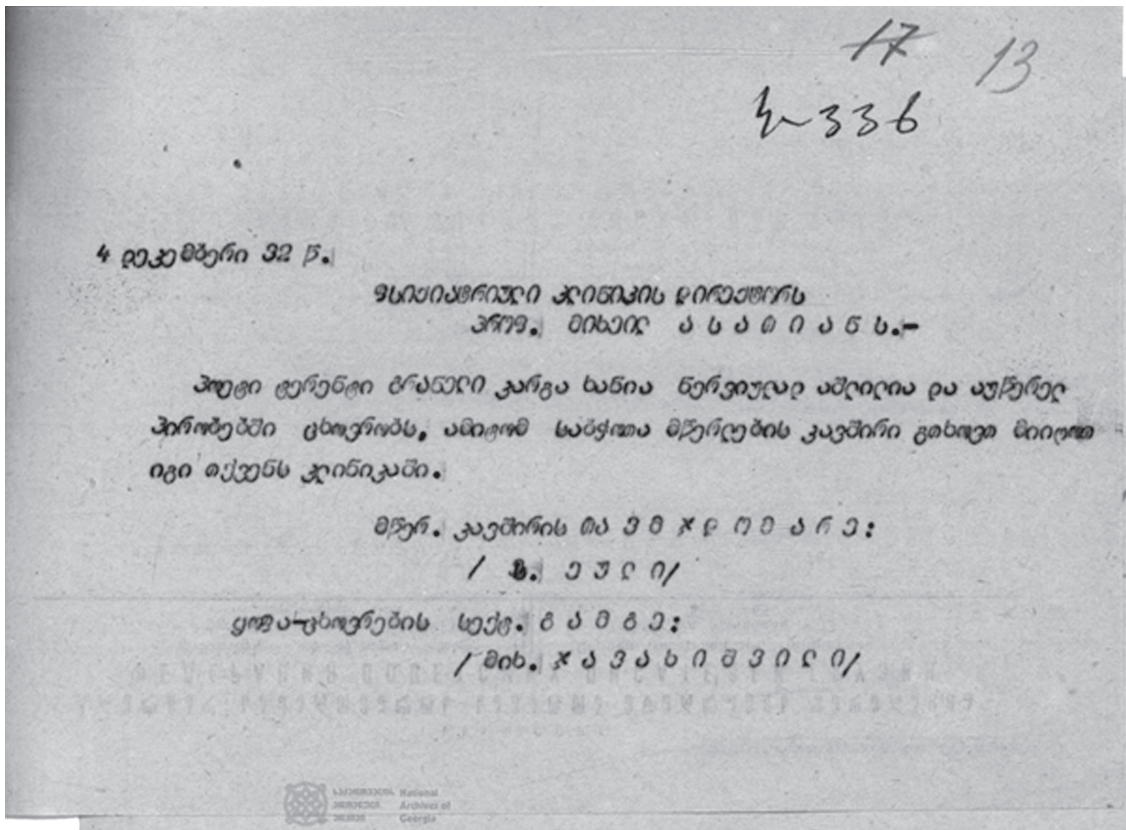 17 13
№ 336
4 დეკემბერი 32 წ.
ფსიქიატრიული კლინიკის დირექტორს
პროფ. მიხეილ ა ს ა თ ი ა ნ ს.-
პოეტი ტერენტი გრანელი კარგა ხანია ნერვიულად აშლილია და აუწერელ
პირობებში ცხოვრობს, ამიტომ საბჭოთა მწერლების კავშირი გთხოვთ მიიღოთ
იგი თქვენს კლინიკაში.
მწერ. კავშირის თ ა ვ მ ჯ დ ო მ ა რ ე:
/ ს. ე უ ლ ი/
ყოფა-ცხოვრების სექტ. გ ა მ გ ე:
/ მიხ. ჯ ა ვ ა ხ ი შ ვ ი ლ ი/
საქართველოს National
ეროვნული Archives of
არქივი Georgia